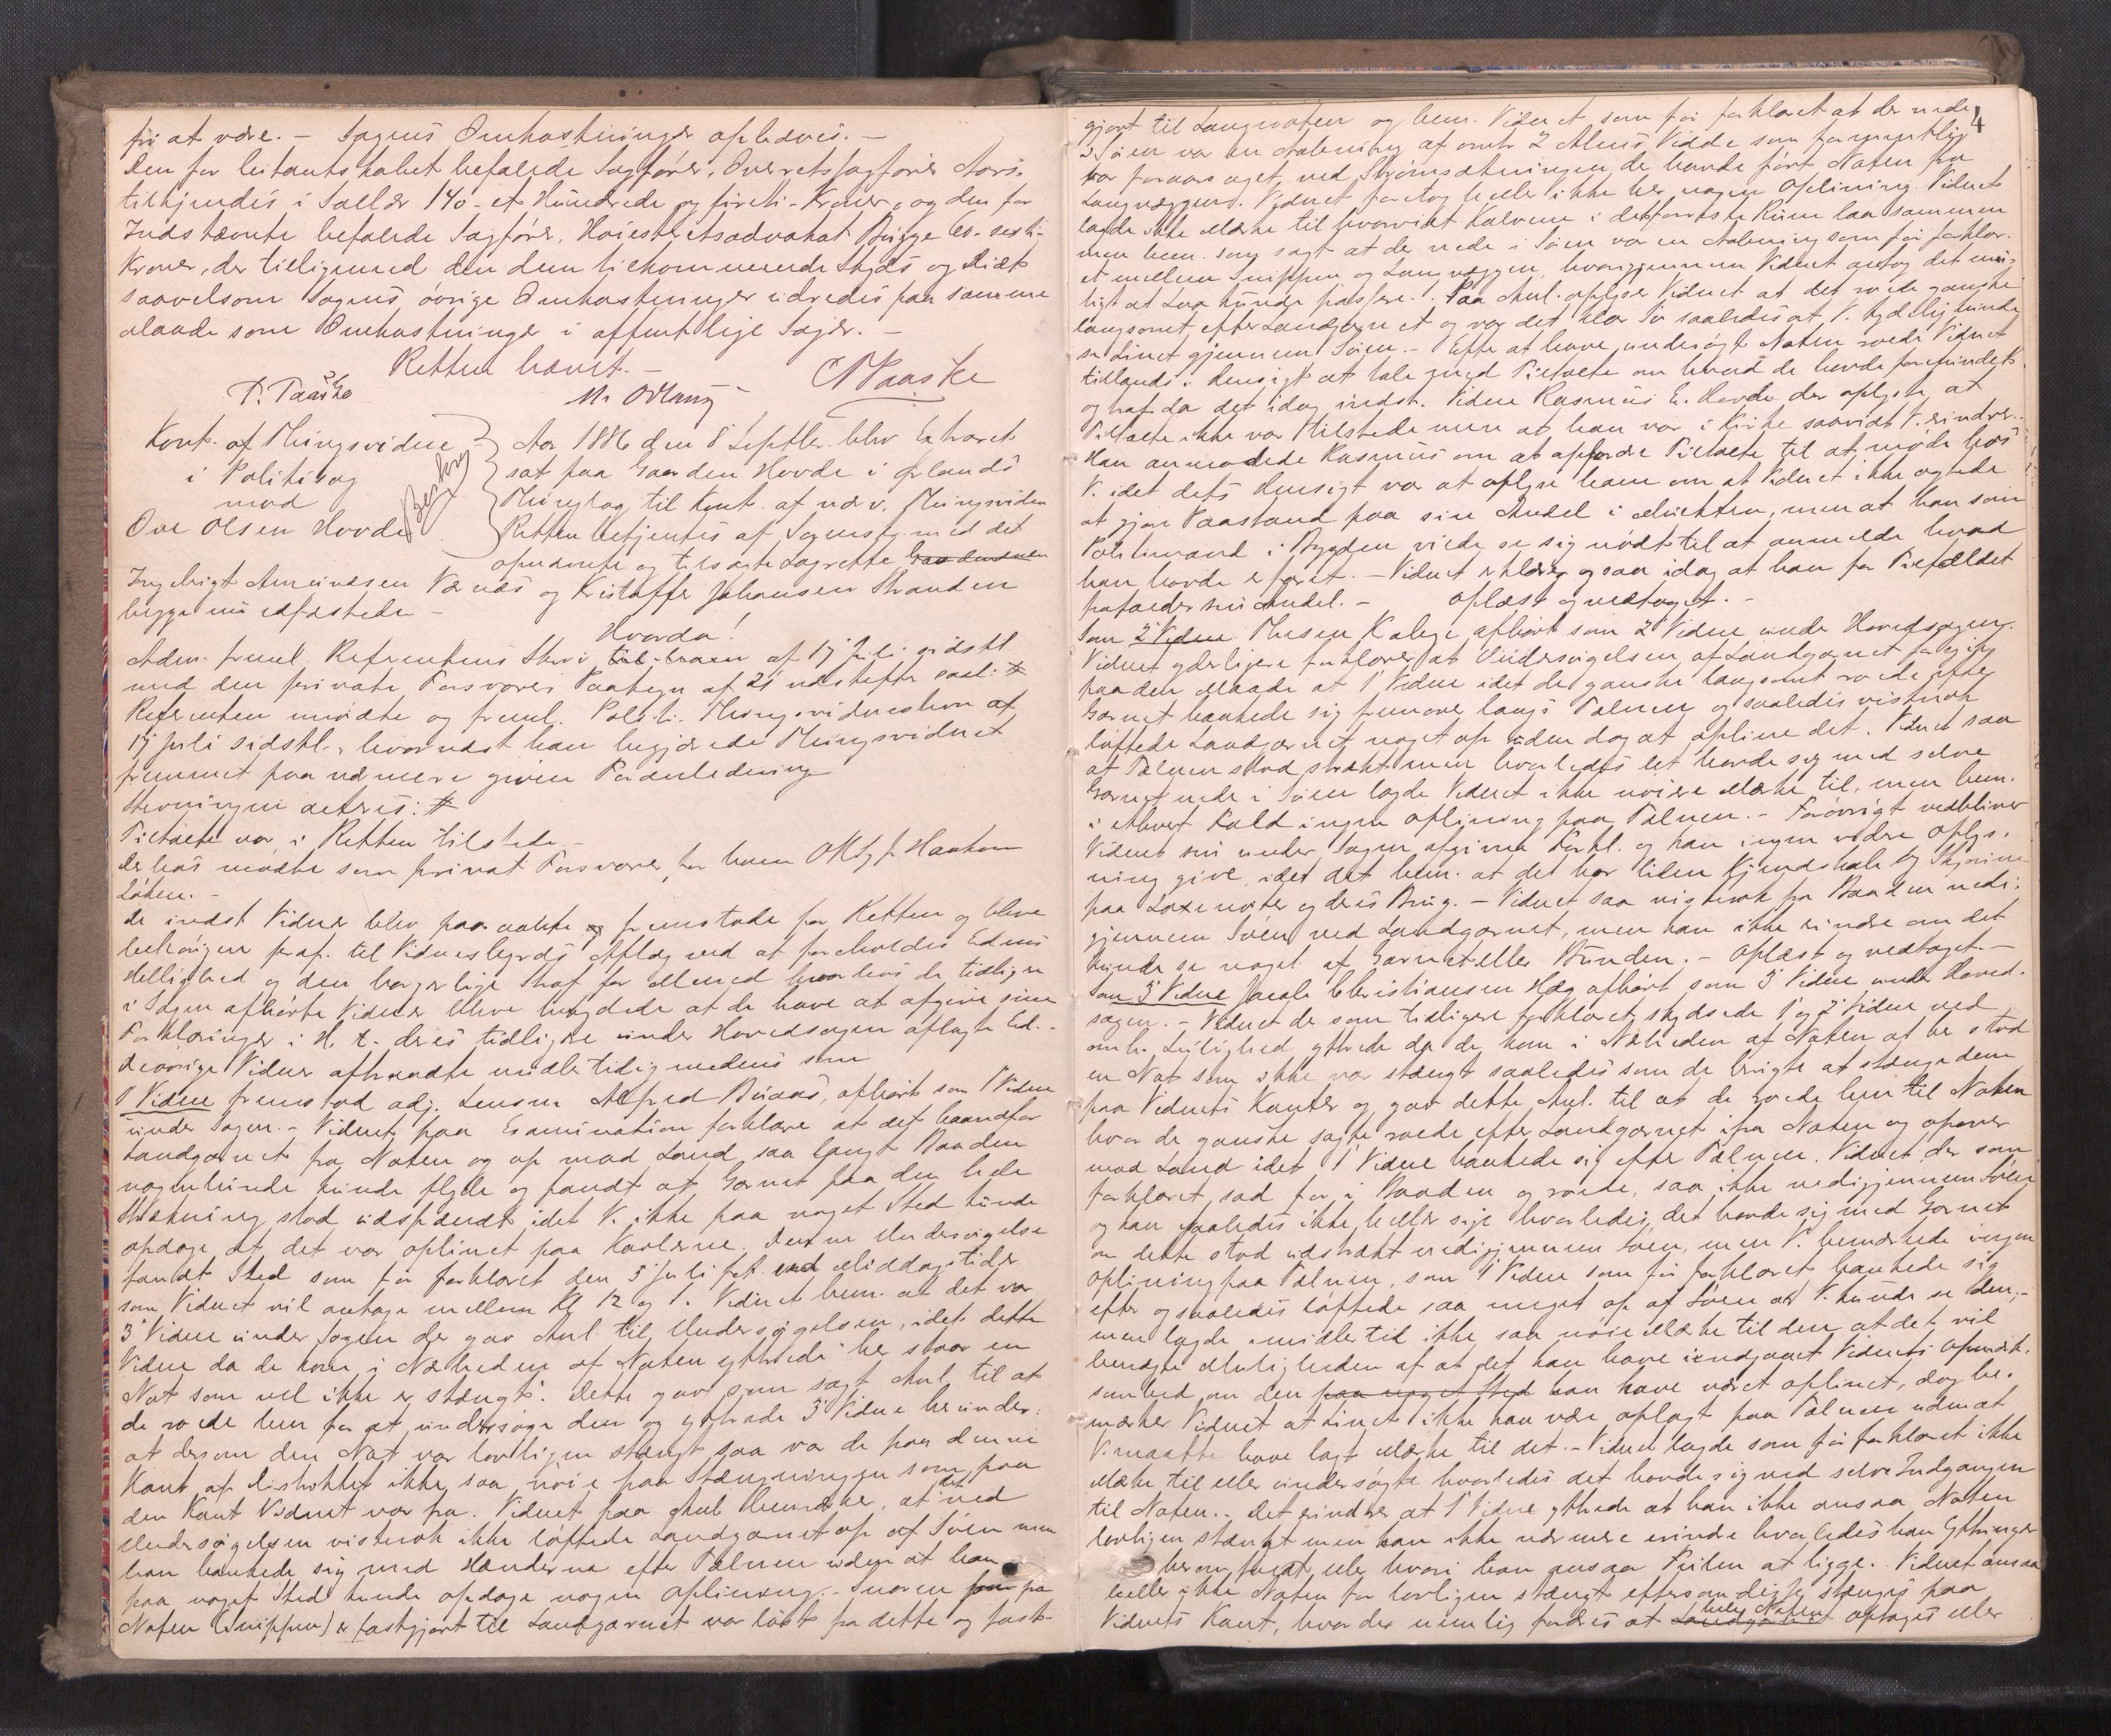 fri at være. – Sagens Omkostninger ophæves. –
Den for Citantskabet befalede Sagfører, Overretssagfører Aars
tilkjendes i Sallær 140 – et Hundrede og firti – Kroner, og den for
Indstævnte befalede Sagfører, Høiesteretsadvokat Bugge 60 – sexti –
Kroner, der tilligemed den dem tilkommende Skyds og Diæt
saavelsom Sagens øvrige Omkostninger udredes paa samme
Maade som Omkostninger i offentlige Sager. –
Retten hævet. –
Kont. af Thingsvidne
i Politisag
mod
Ove Olsen Hovde
Beskrev
Aar 1886 den 8 Septbr. blev Extraret
sat paa Gaarden Hovde i Ørlands
Thinglag til Kont. af nærv. Thingsvidne
Retten betjentes af Sognsfg. med det
opnævnte og tilsagte Lagrette
Ingebrigt Amundsen Værnes og Kristoffer Johansen Stranden
begge nu edfæstede –
Hvorda!
Adm. freml. Referentens Skriv. af 17 Juli sidstl.
med den private Forsvarers Paategn. af 21 næstefter saal: #
Referenten mødte og freml. Politi-Thingsvidneskrn af
17 Juli sidstl., hvornæst han begjærede Thingsvidnet
fremmet paa nærmere given Foranledning
Stevningen acteres: #
Tiltalte var i Retten tilstede –
Derhos mødte som privat Forsvarer for ham ORSgf. Haakon
Løken. –
De indst. Vidner blev paaraabte fremstode for Retten og bleve
behørigen præp. til Vidnesbyrds Aflæg ved at foreholdes Edens
Hellighed og den borgerlige Straf for Mened hvorhos de tidligere
i Sagen afhørte Vidner bleve betydede at de have at afgive sine
Forklaringer i H. t. deres tidligere under Hovedsagen aflagte Ed. –
De øvrige Vidner aftraadte midlertidig medens som
1 Vidne fremstod adj. Lensm. Alfred Buaas, afhørt som 1 Vidne
under Sagen. – Vidnet paa Examination forklare at det haandfor
Landgarnet fra Noten og op mod Land saa langt Baaden
nogenlunde kunde flyde og fandt at Garnet paa den hele
Strækning stod udspændt idet V. ikke paa noget Sted kunde
opdage at det var oplinet paa Kavlerne. Denne Undersøgelse
fandt Sted som før forklaret den 5 Juli ved Middagstider
som Vidnet vil antage mellem Kl 12 og 1. Vidnet bem. at det var
3 Vidne under Sagen der gav Anl. til Undersøgelsen, idet dette
Vidne da de kom i Nærheden af Noten yttrede "her staar en
Not som vel ikke er stængt". Dette gav som sagt Anl. til at
de roede hen for at undersøge den og yttrede 3 Vidne herunder
at dersom den Not var lovligen stængt saa var de paa denne
Kant af Distriktet ikke saa nøie paa Stængningen som paa
den Kant Vidnet var fra. Vidnet paa Anl. bemærker, at det ved
Undersøgelsen vistnok ikke løftede Landgarnet op af Søen men
han hankede sig med Hænderne efter Tælnen uden at han
paa noget Sted kunde opdage nogen Oplining. – Snoren fra
Noten (Snippen) er fastgjort til Landgarnet var løst fra dette og fast-
4
gjort til Langnoten og bem. Vidnet som før forklaret at der nede
i Søen var en Aabning af omtr. 2 Alens Vidde som formentlig
var foraarsaget ved Strømsætningen, der havde ført Noten fra
Langvæggen. Vidnet foretog heller ikke her nogen Oplining. Vidnet
lagde ikke Mærke til hvorvidt Kalvene i det forreste Rum laa sammen
men bem. som sagt at der nede i Søen var en Aabning som før forklar-
et mellem Snippen og Langvæggen, hvorigjennem Vidnet antog det mu-
ligt at Lax kunde passere. Paa Anl. oplyser Vidnet at det roede ganske
langsomt efter Landgarnet og var det klar Sø saaledes at V. tydelig kunde
se Linet gjennem Søen. – Efter at have undersøgt Noten roede Vidnet
tillands i Hensigt at tale med Tiltalte om hvad de havde forefundet
og traf da det idag indst. Vidne Rasmus E. Hovde der oplyste, at
Tiltalte ikke var tilstede men at han var i Kirke saavidt V. erindrer.
Han anmodede Rasmus om at opfordre Tiltalte til at møde hos
V. idet dets Hensigt var at oplyse ham om at Vidnet ikke agtede
at gjøre Paastand paa sin Andel i Mulkten, men at han som
Politimand i Bygden vilde se sig nødt til at anmelde hvad
han havde erfaret. – Vidnet erklærer ogsaa idag at han for Tilfældet
frafalder sin Andel. – Oplæst og vedtaget. –
Som 2 Vidne Thesen Kalege afhørt som 2 Vidne under Hovedsagen.
Vidnet yderligere forklarer at Undersøgelsen af Landgarnet foregik
paa den Maade at 1 Vidne idet de ganske langsomt roede efter
Garnet hankede sig fremover langs Tælnen og saaledes vistnok
løftede Landgarnet noget op uden dog at opline det. Vidnet saa
at Tælnen stod strakt men hvorledes det havde sig med selve
Garnet nede i Søen lagde Vidnet ikke nøiere Mærke til, men bem.
i ethvert Fald ingen Oplining paa Tælnen. – Forøvrigt vedbliver
Vidnet sin under Sagen afgivne Forkl. og kan ingen videre Oplys-
ning give, idet det bem. at det har liden Kjendskab og Skjønne
paa Laxenøter og deres Brug. – Vidnet saa vistnok fra Baaden ned i-
gjennem Søen ved Landgarnet, men kan ikke erindre om det
kunde se noget af Garnet eller Bunden. – Oplæst og vedtaget. –
Som 3 Vidne Jacob Christiansen Hæg afhørt som 3 Vidne under Hoved-
sagen. – Vidnet der som tidligere forklaret skydsede 1 og 2 Vidne ved
omh. Leilighed yttrede da de kom i Nærheden af Noten at her stod
en Not som ikke var stængt saaledes som de brugte at stænge dem
paa Vidnets Kanter og gav dette Anl. til at de roede hen til Noten
hvor de ganske sagte roede efter Landgarnet ifra Noten og opover
mod Land idet 1 Vidne hankede sig efter Tælnen. Vidnet der som
forklaret sad for i Baaden og roede, saa ikke nedigjennem Søen
og kan saaledes ikke heller sige hvorledes det havde sig med Garnet
om dette stod udstrakt nedigjennem Søen, men V. bemærkede ingen
Oplining paa Tælnen, som 1 Vidne som før forklaret hankede sig
efter og saaledes løftede saa meget op af Søen at V. kunde se den; –
men lagde imidlertid ikke saa nøie Mærke til den at det vil
benægte Muligheden af at det kan have undgaaet Vidnets Opmærk-
somhed om den paa noget Sted kan have været oplinet, dog be-
mærker Vidnet at Linet ikke kan være oplagt paa Tælnen uden at
V. maatte have lagt Mærke til det. – Vidnet lagde som før forklaret ikke
Mærke til eller undersøgte hvorledes det havde sig ved selve Indgangen
til Noten. – Det erindrer at 1 Vidne yttrede at han ikke ansaa Noten
lovligen stængt men kan ikke nærmere erindre hvorledes han Ytringer
herom faldt eller hvori han ansaa Feilen at ligge. Vidnet ansaa
heller ikke Noten for lovligen stængt eftersom disse stænges paa
Vidnets Kant, hvor der nemlig fordres at hele Noten optages eller